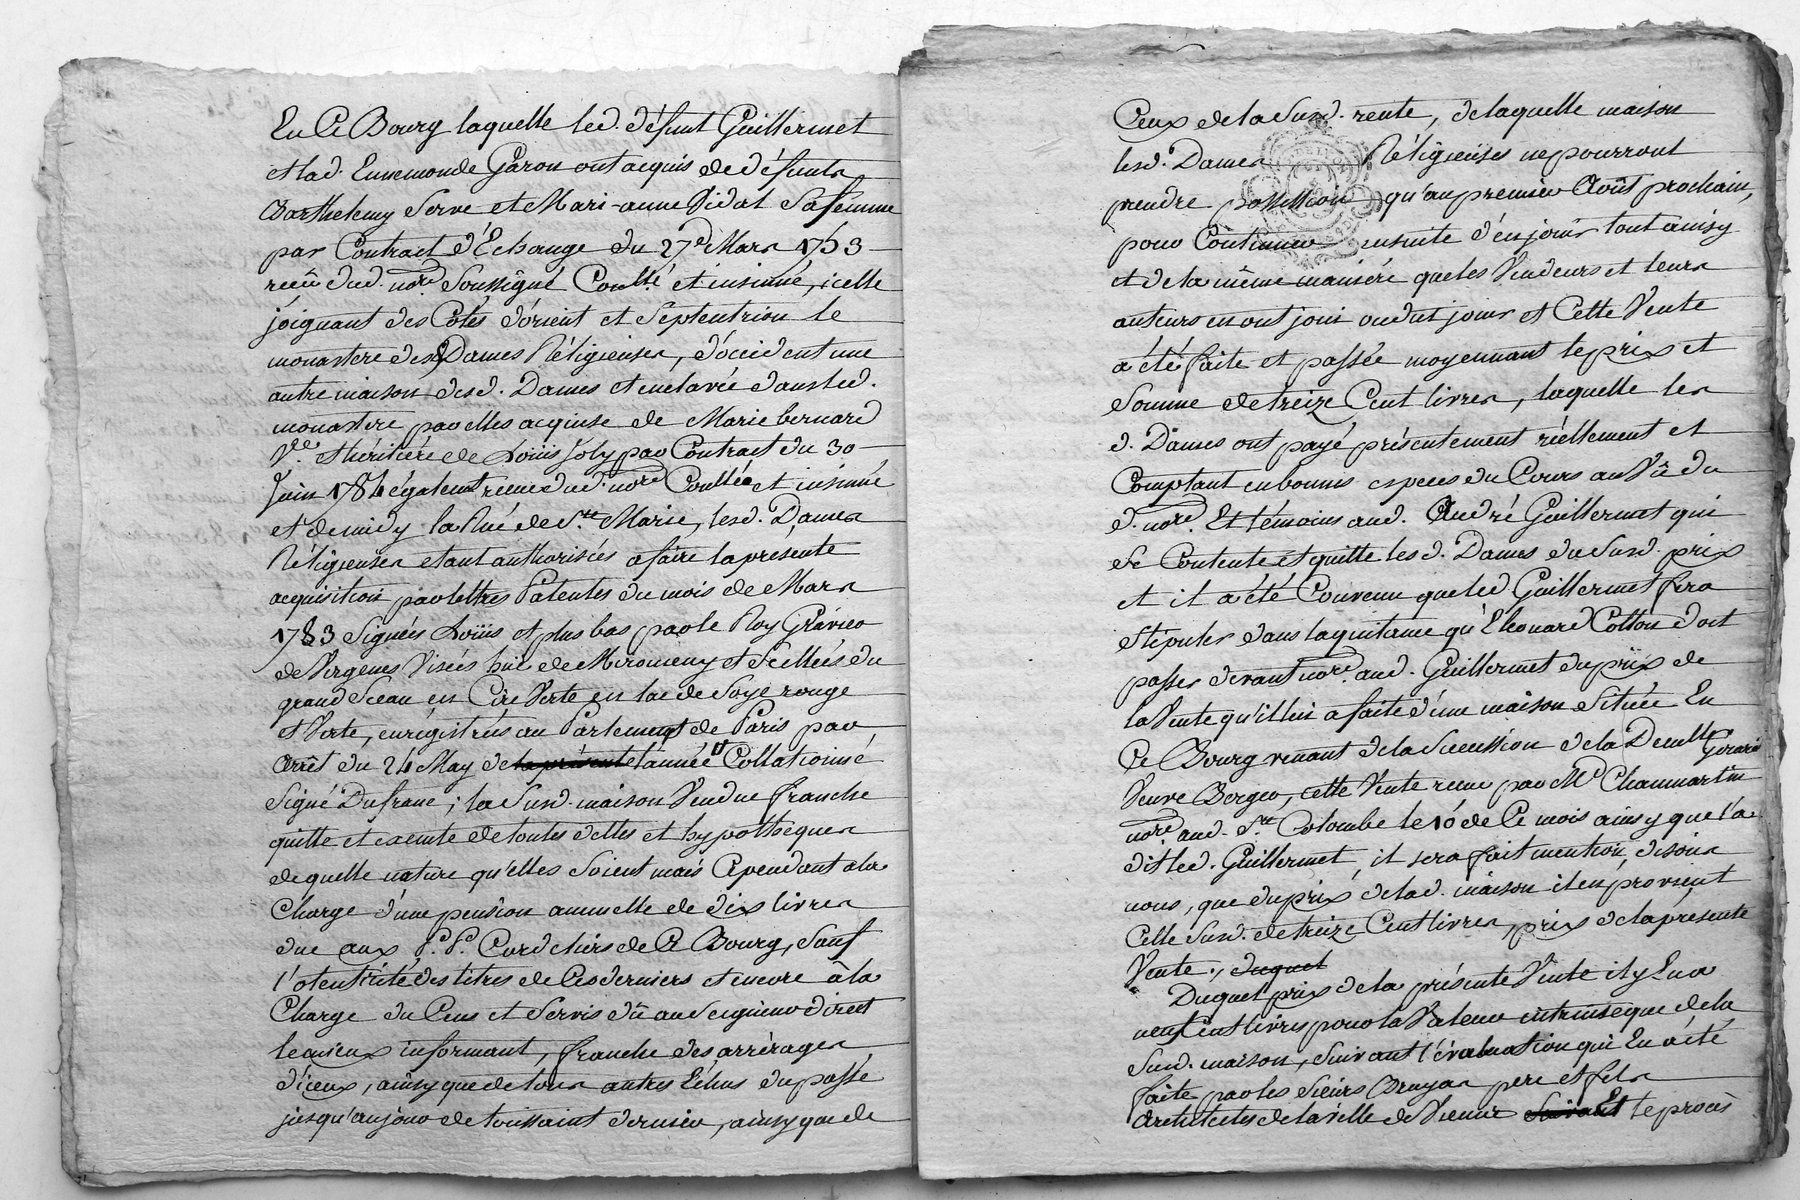 En Ce Bourg laquelle led. défunt Guillermet
et lad. Ennemonde Garon ont acquis de défunts
Barthelemy Serve et Mari-anne Vidal Sa femme
par Contract d'Echange du 27e Mars 1753
reçû dud. nore. Soussigné Coullé. et insinué, icelle
joignant des Cotés d'orient et Septentrion le
monastere desd Dames Réligieuses, d'occident une
autre maison desd. Dames et enclavée dans led.
monastere par elles acquise de Marie bernard
Ve. et héritiére de Loüis Joly par Contract du 30
Juin 1784 également reçue dud. nore Coullée et insinué
et de midy la Rué de Ste Marie, lesd. Dames
Réligieuses etant authorisées a faire la présente
acquisition par lettres Patentes du mois de Mars
1783 Signées Loüis et plus bas par le Roy Gravier
de Vergenes Visées hüe de Miromeny et Scellées du
grand Sceau en Cire Verte en lac de Soye rouge
et Verte, enrégistrées au Parlement de Paris par
Arrêt du 24 May de la présente l'année Collationné
Signé Dufranc; la Susd. maison Vendue franche
quitte et exemte de toutes dettes et hypotheques
de quelle nature qu'elles Soient mais Cependant a la
Charge d'une pension annuelle de dix livres
due aux P.P. Cordeliers de Ce Bourg, Sauf
l'otenticité des titres de Ces derniers et encore à la
Charge du Cens et Servis dû au Seigneur direct
le mieux informant, franche des arrérages
d'iceux, ainsy que de tous autres Echus du passé
jusqu'au jour de toussaint dernier, ainsy que de
Ceux de la Susd. rente, de laquelle maison
lesd. Dames Réligieuses ne pourront
prendre possession qu'au premier Août prochain,
pour Continuer ensuite d'en jouir tout ainsy
et de la même maniére que les Vendeurs et leurs
auteurs en ont joui ou dut jouir et Cette Vente
a été faite et passée moyennant le prix et
Somme de treize Cent livres, laquelle les
d. Dames ont payé présentement réellement et
Comptant en bonnes especes du Cours au Vû du
d. nore. Et témoins aud. André Guillermet qui
Se Contente et quitte les d. Dames du Susd. prix
et il a été Convenu que led Guillermet fera
Stipuler dans la quitance qu'Eleonard Cotton doit
passer devant nore. aud. Guillermet du prix de
la Vente qu'il lui a faite d'une maison Située En
Ce Bourg venant de la Succession de la Demlle Girard
Veuve Berger, cette Vente reçue par Me Chaumartin
nore aud. Ste Colombe le 10 de Ce mois ainsy que l'a
dit led. Guillermet, il sera fait mention, disons
nous, que du prix de lad. maison il en provient
Celle Susd. de treize Cent livres, prix de la présente
Vente., duquel
Duquel prix de la présente Vente il y En a
neuf cent livres pour la Valeur intrinseque de la
Susd. maison, Suivant l'évaluation qui En a été
faite par les Sieurs Bruyas pere et fils
architectes de la ville de Vienne Suivant le procès